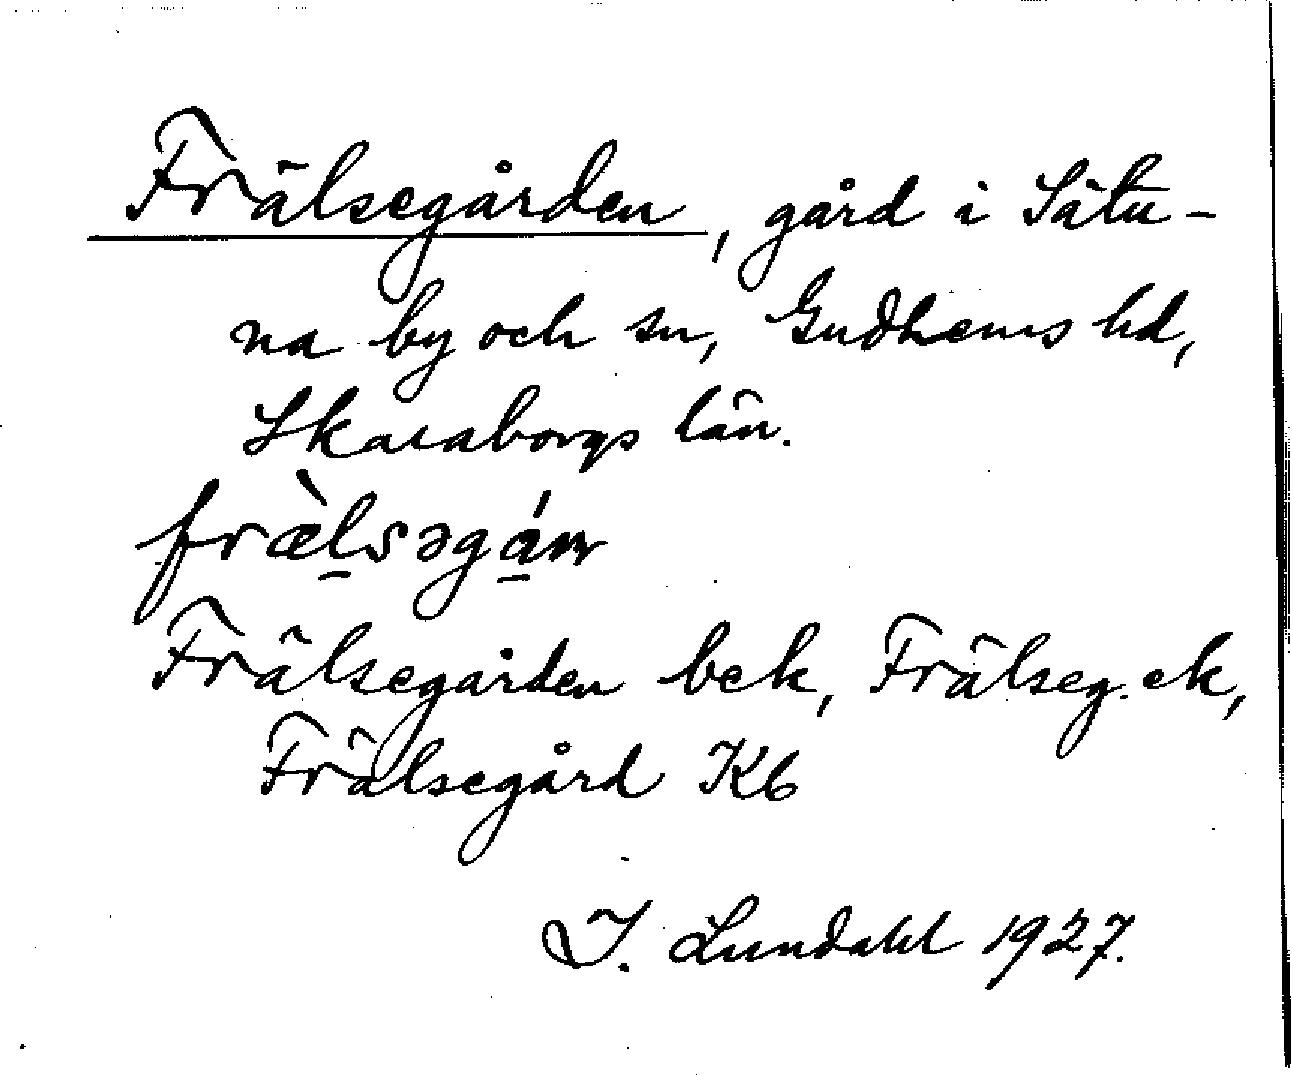 Frälsegården, gård i Sätu-
na by och sn, Gudhems hd,
Skaraborgs län.
fræ̀lsəgán
Frälsegården bek, Frälseg. ek,
Frälsegård Kb
I. Lundahl 1927.